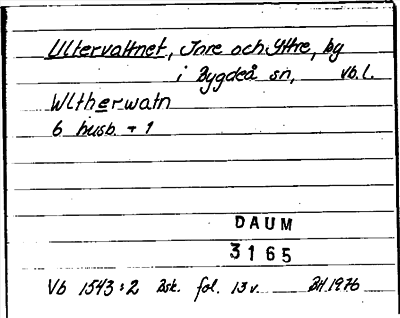 Ultervattnet, Inre och Yttre, bg
i Bygdeå sn, Vb.l.
Wltherwatn
6 husb. + 1
DAUM
3165
Vb 1543:2 Bsk. fol. 13v. BH 1976